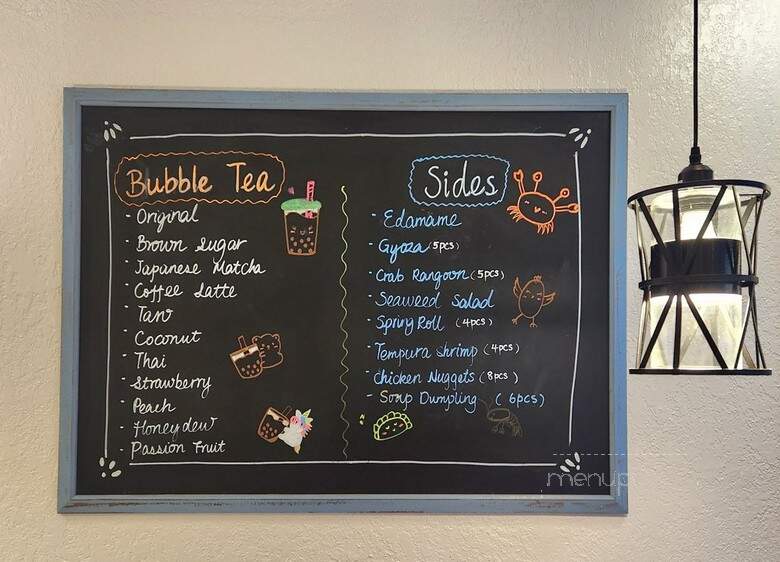 Bubble Tea
- Original
- Brown Sugar
- Japanese Matcha
- Coffee Latte
- Taro
- Coconut
- Thai
- Strawberry
- Peach
- Honeydew
- Passion Fruit
Sides
- Edamame
- Gyoza (5pcs)
- Crab Rangoon (5pcs)
- Seaweed Salad
- Spring Roll (4pcs)
- Tempura shrimp (4pcs)
- Chicken Nuggets (8pcs)
- Soup Dumpling (6pcs)
menupix